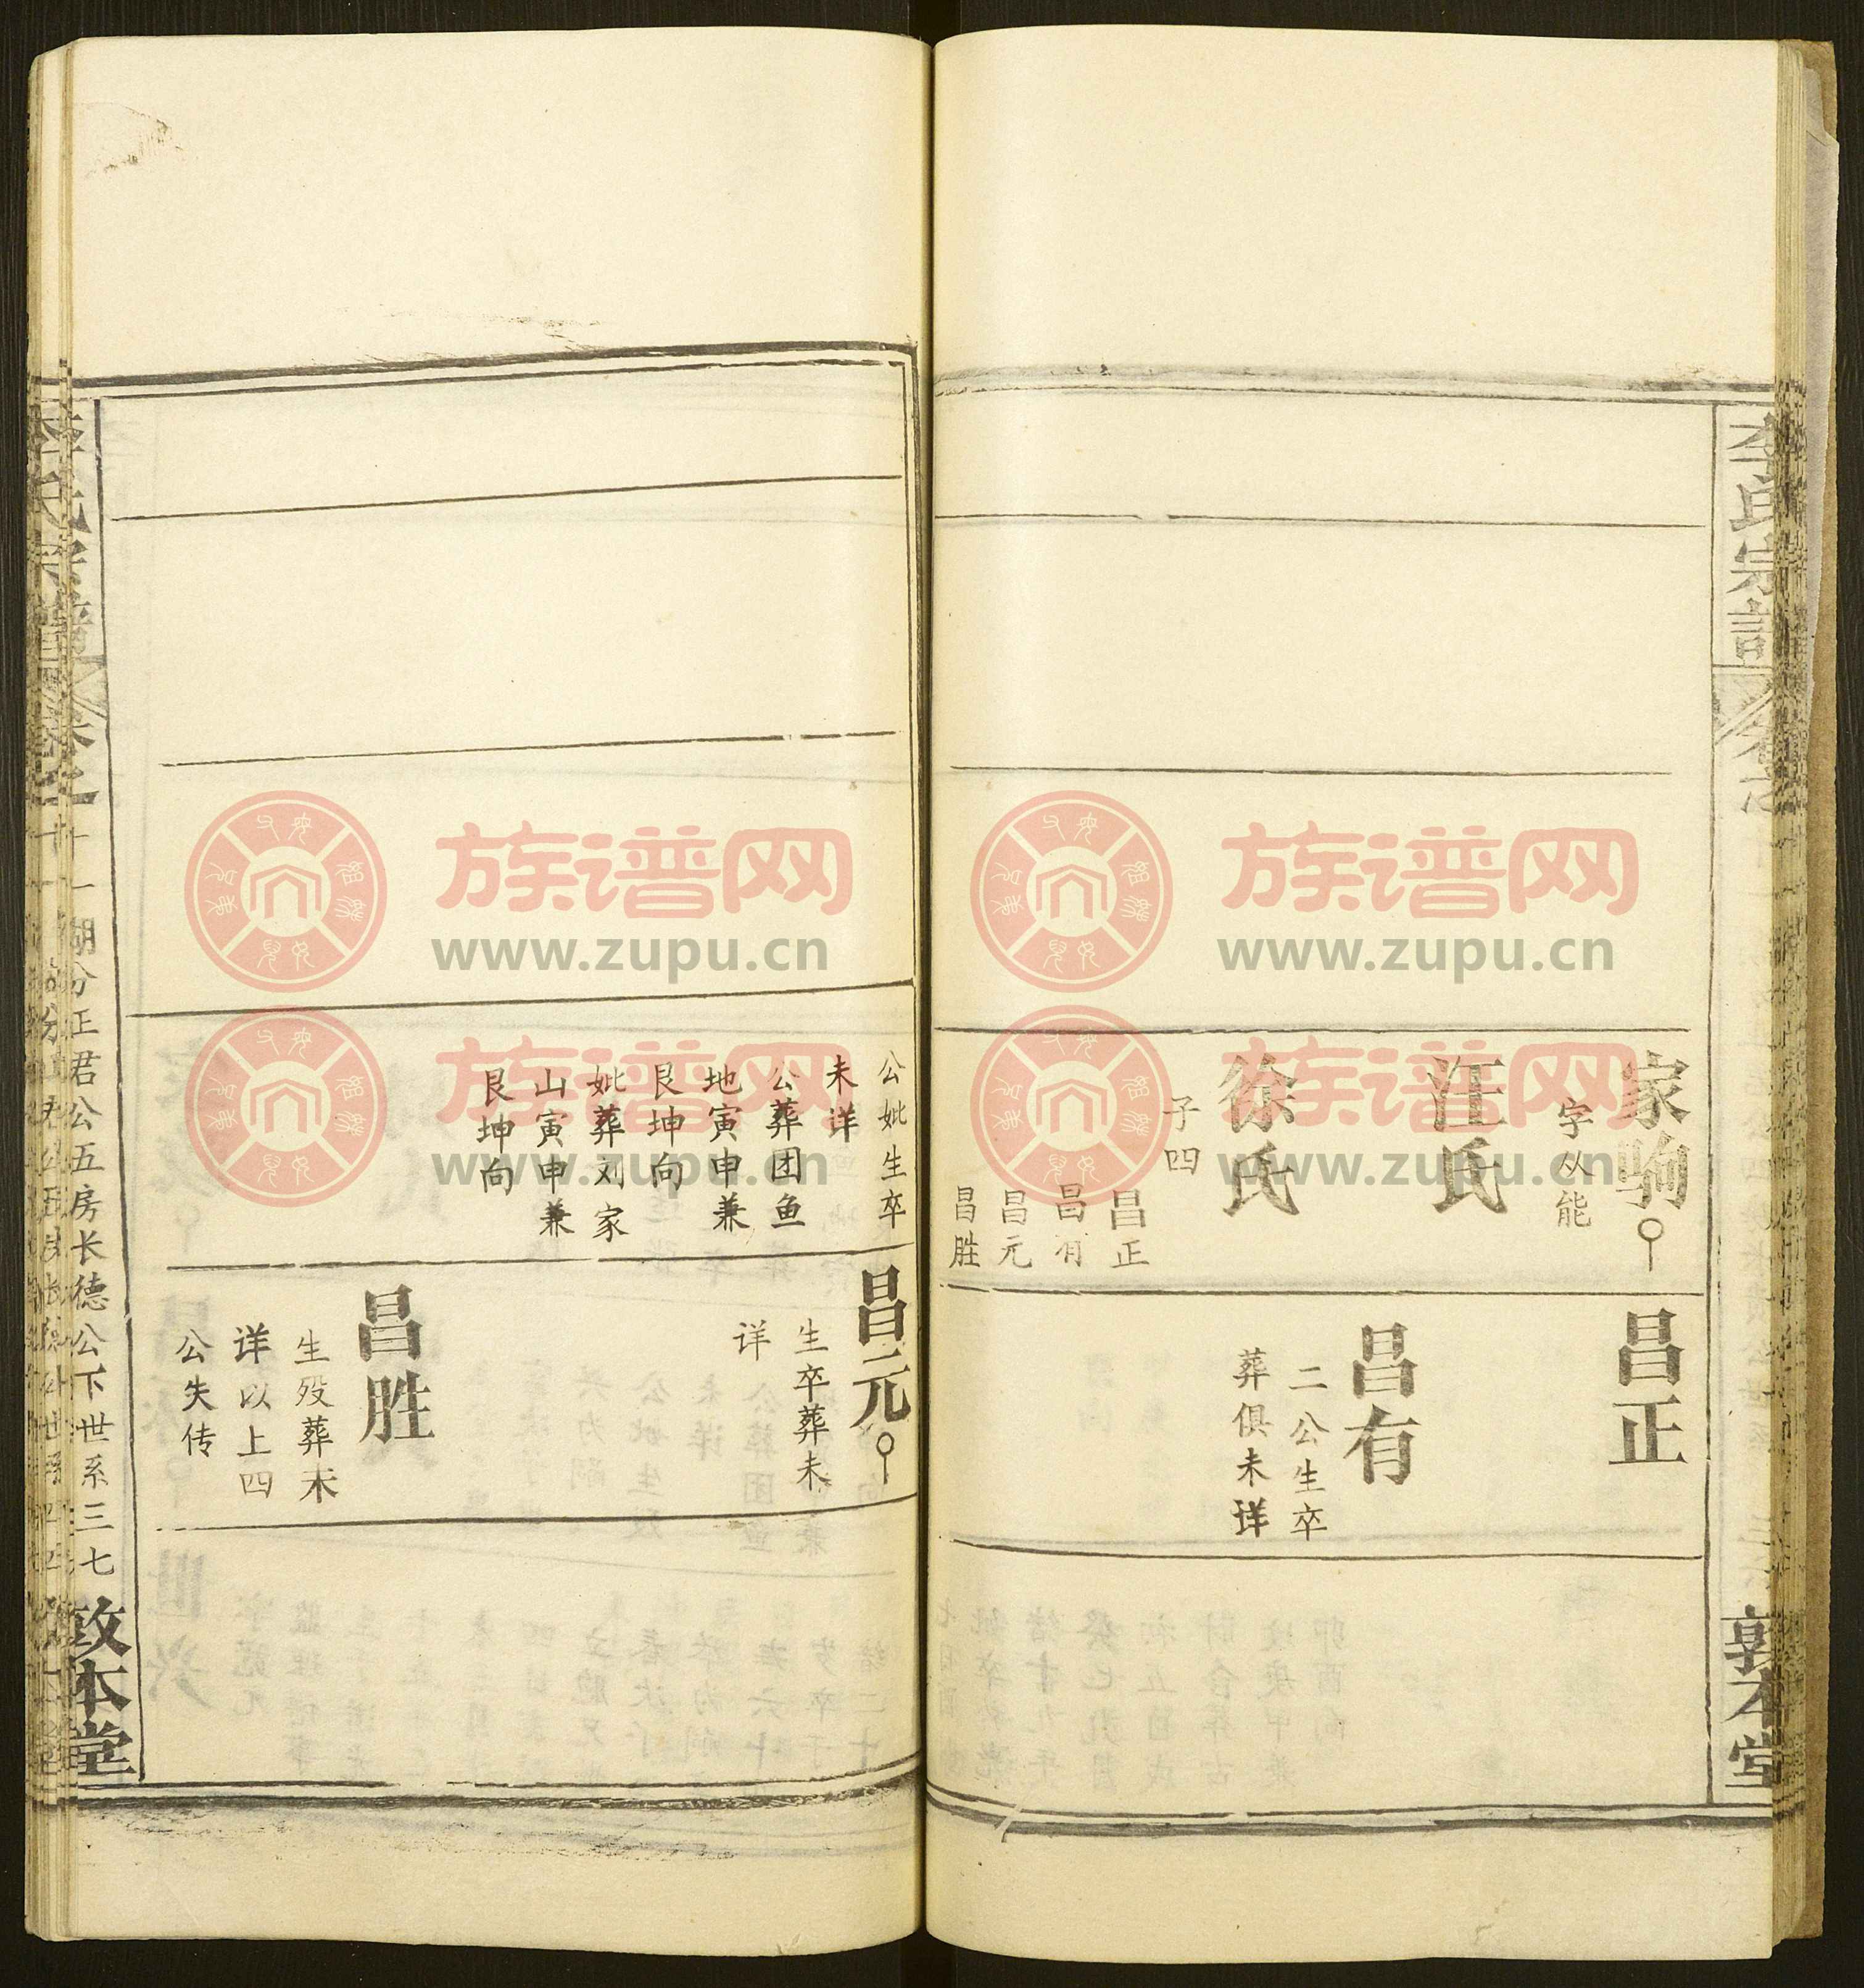 李氏宗譜
敦本堂
家驹
字从能
汪氏
徐氏
子四
昌正
昌有
昌元
昌胜
昌正
昌有
二公生卒
葬俱未详
公妣生卒
未详
公葬团鱼
地寅申兼
艮坤向
妣葬刘家
山寅申兼
艮坤向
昌元
生卒葬未
详
昌胜
生殁葬未
详以上四
公失传
李氏宗譜
卷之十一
湖分正君公五房长德公下世系三七
敦本堂
族谱网
www.zupu.cn
族谱网
www.zupu.cn
www.zupu.cn
www.zupu.cn